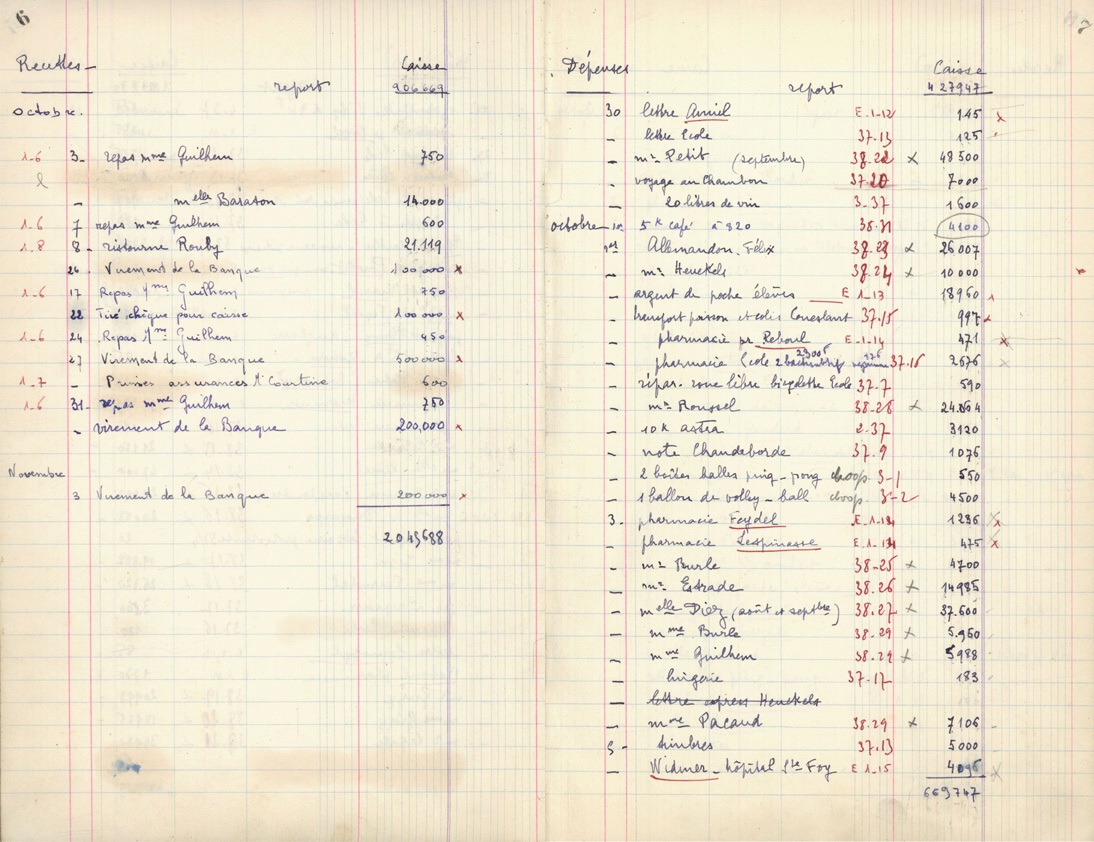 6
Recettes
Caisse
report 906669
octobre.
1-6 3 - repas mme Guilhem 750
- melle Baraton 14.000
1-6 7 repas mme Guilhem 600
1-8 8 - ristourne Rouby 21.119
Virement de la Banque 100 000 x
1-6 17 Repas Mme Guilhem 750
22 Tiré chèque pour caisse 100 000 x
1-6 24 Repas Mme Guilhem 450
27 Virement de la Banque 500 000 x
1-7 - Primes assurances 600
1-6 31 - repas mme Guilhem 750
- virement de la Banque 200,000 x
Novembre
3 Virement de la Banque 200 000 x
2045688
7
Dépenses
Caisse
report 427947
30 lettre Amiel E.1-12 145 x
- lettre Ecole 37.13 125
- me Petit (septembre) 38.22 x 48 500
- voyage au Chambon 37 20 7000
- 20 litres de vin 3-37 1600
octobre - 5 K café à 820 4100
Allemandon. Félix 38.23 x 26 007
- me Henckels 38.24 x 10 000
- argent de poche élèves E 1-13 18960
- transport poisson et colis 37.15 997
- pharmacie pr Reboul E-1-14 471 x
- pharmacie Ecole 37.16 2676 x
- répar. roue libre bicyclette Ecole 37-7 590
- me Roussel 38-28 x
- 10 K astra 2-37 3120
- note Chandeborde 37.9 1076
- 2 boîtes balles ping-pong choop. 3-1 550
- 1 ballon de volley-ball choop. 4500
3 - pharmacie Feydel E.1-14 1236 x
- pharmacie Lespinasse E.1-14 475 x
- me Burle 38-25 x 4700
- me Estrade 38.26 x 14985
- melle Diez (août et septbre) 38.27 x 37.600
- mme Burle 38-29 x 5.960
- mme Guilhem 38-29 x 5988
- lingerie 37-17 183
- lettre express Henckels
- mme Pacaud 38.29 x 7106
5 - timbres 37.13 5000
- Widmer - hôpital Ste Foy E 1-15 4096 x
669747